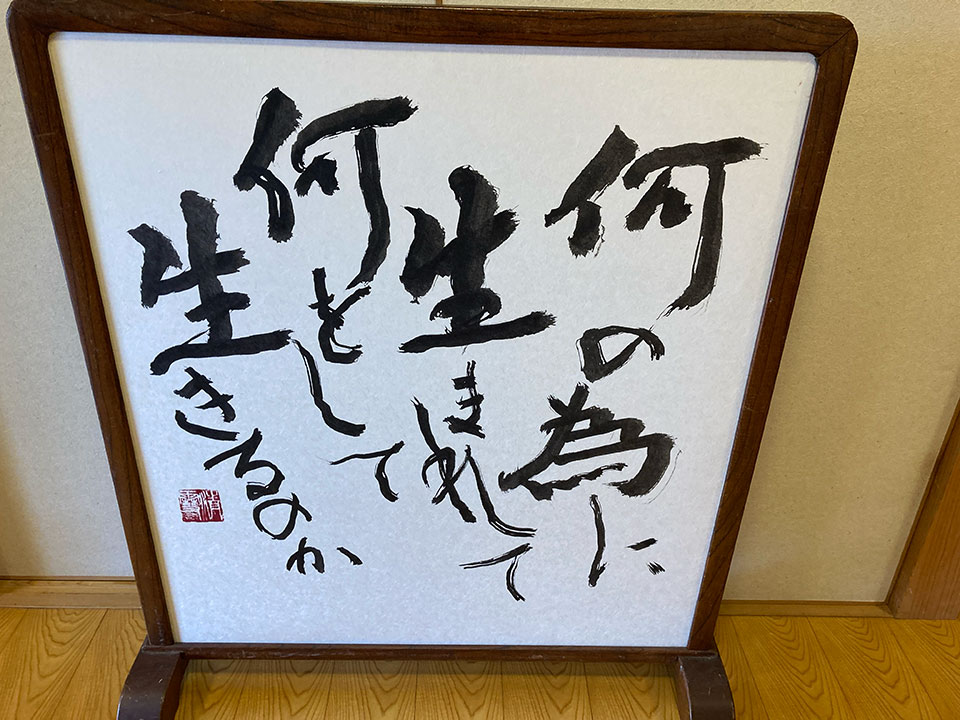 何の為に
生まれて
何をして
生きるのか